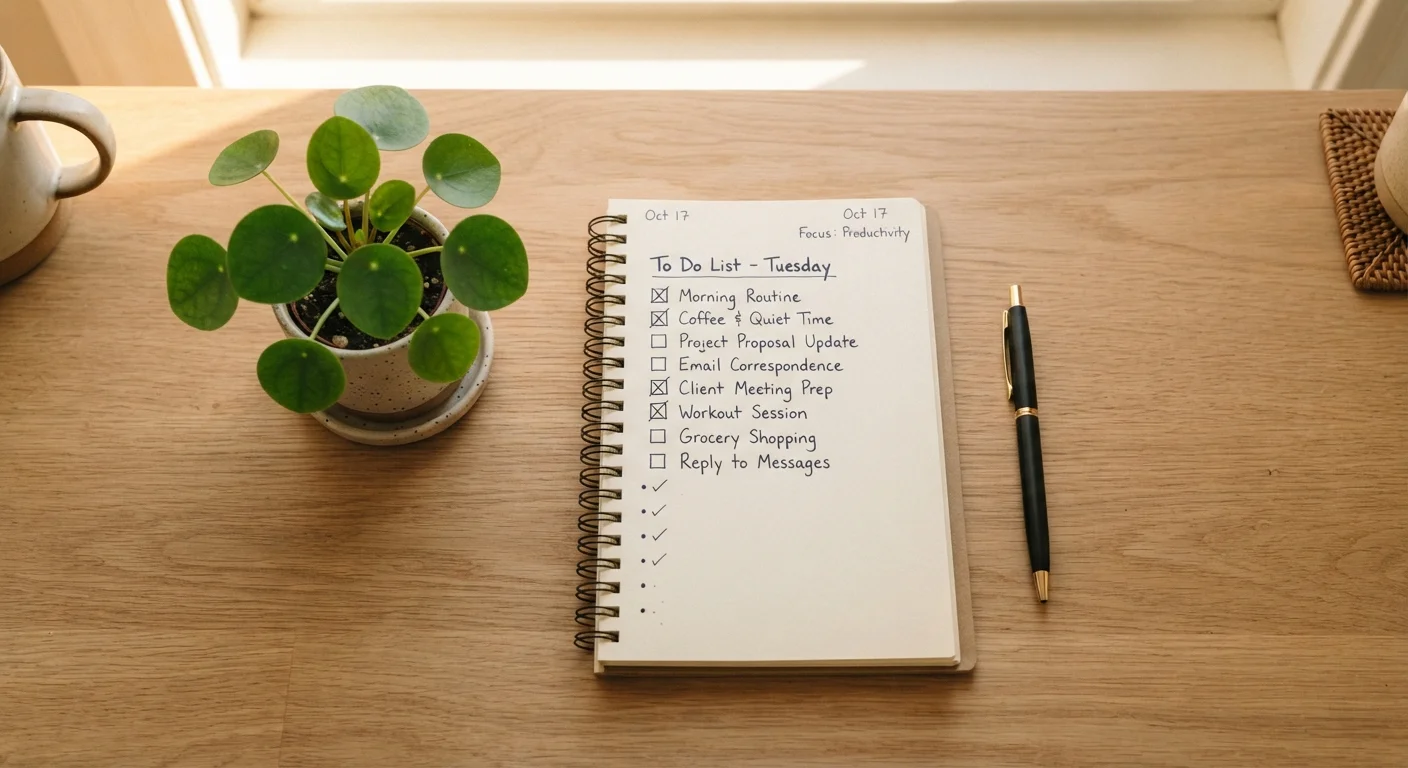 Oct 17
Oct 17
Focus: Preductivity
To Do List - Tuesday
☒ Morning Routine
☒ Coffee & Quiet Time
☐ Project Proposal Update
☐ Email Correspondence
☒ Client Meeting Prep
☒ Workout Session
☐ Grocery Shopping
☐ Reply to Messages
• ✓
• ✓
• ✓
• ✓
•
•